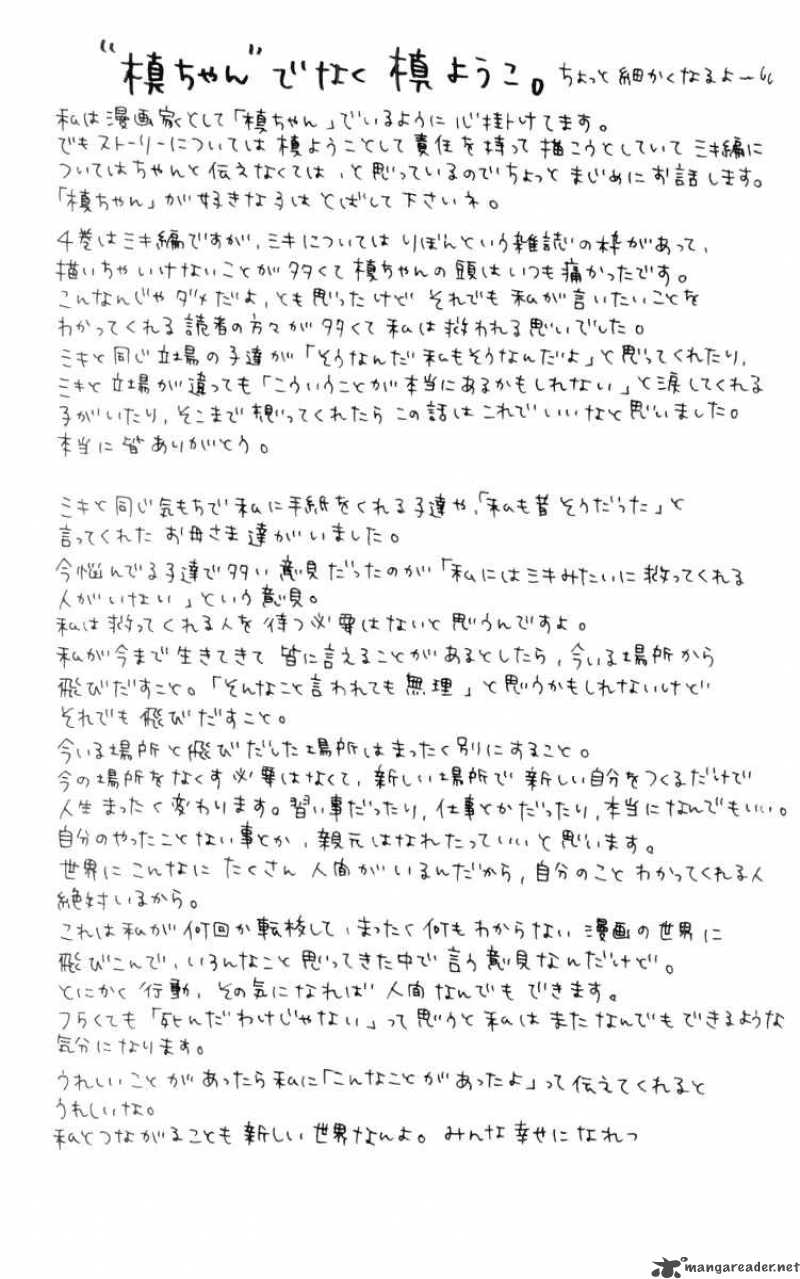 “槙ちゃん”でなく 槙ようこ。ちょっと細かくなるよー
私は漫画家として「槙ちゃん」でいるように心掛けてます。
でもストーリーについては 槙ようことして責任を持って描こうとしていて ミキ編に
ついてはちゃんと伝えなくては、と思っているのでちょっとまじめにお話します。
「槙ちゃん」が好きな子はとばして下さいネ。
4巻はミキ編ですが、ミキについては りぼんという雑誌の枠があって、
描いちゃいけないことが多くて槙ちゃんの頭はいつも痛かったです。
こんなんじゃダメだよ、とも思ったけど それでも私が言いたいことを
わかってくれる読者の方々が多くて私は救われる思いでした。
ミキと同じ立場の子達が「そうなんだ私もそうなんだよ」と思ってくれたり、
ミキと立場が違っても「こういうことが本当にあるかもしれない」と涙してくれる
子がいたり、そこまで想ってくれたらこの話はこれでいいなと思いました。
本当に皆ありがとう。
ミキと同じ気もちで私に手紙をくれる子達や、「私も昔そうだった」と
言ってくれたお母さま達がいました。
今悩んでる子達で多い意見だったのが「私にはミキみたいに救ってくれる
人がいない」という意見。
私は救ってくれる人を待つ必要はないと思うんですよ。
私が今まで生きてきて皆に言えることがあるとしたら、今いる場所から
飛びだすこと。「そんなこと言われても無理」と思うかもしれないけど
それでも飛びだすこと。
今いる場所と飛びだした場所はまったく別にすること。
今の場所をなくす必要はなくて、新しい場所で新しい自分をつくるだけで
人生まったく変わります。習い事だったり、仕事とかだったり、本当になんでもいい。
自分のやったことない事とか、親元はなれたっていいと思います。
世界にこんなにたくさん人間がいるんだから、自分のことわかってくれる人
絶対いるから。
これは私が何回か転校して、まったく何もわからない漫画の世界に
飛びこんで、いろんなこと思ってきた中で言う意見なんだけど。
とにかく行動、その気になれば人間なんでもできます。
つらくても「死んだわけじゃない」って思うと私はまたなんでもできるような
気分になります。
うれしいことがあったら私に「こんなことがあったよ」って伝えてくれると
うれしいな。
私とつながることも新しい世界なんよ。みんな幸せになれっ
mangareader.net